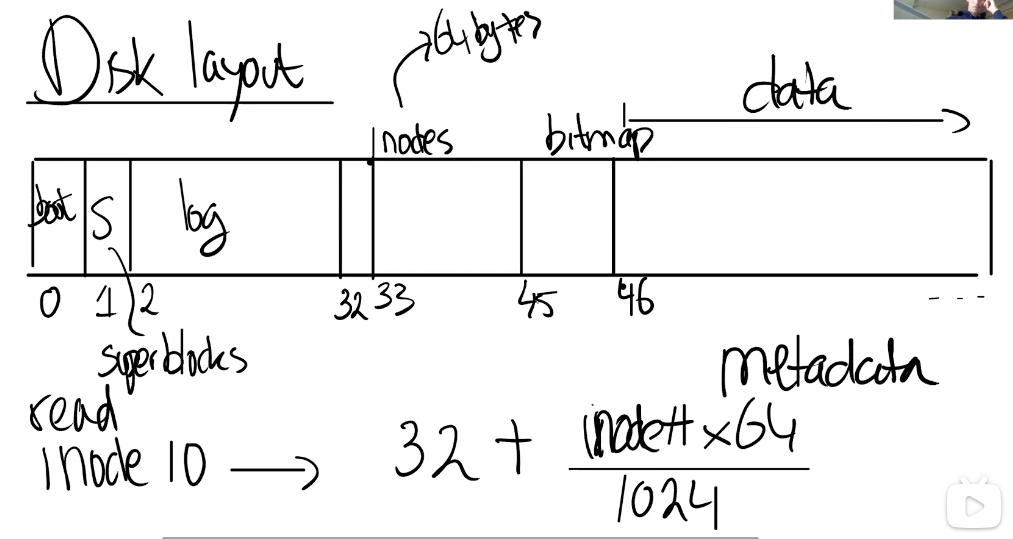 Disk layout
→64 bytes
inodes
bitmap
data
boot
S
log
0 1 2 32 33 45 46 ---
superblocks
metadata
read
inode 10 → 32 + inode# x 64
1024